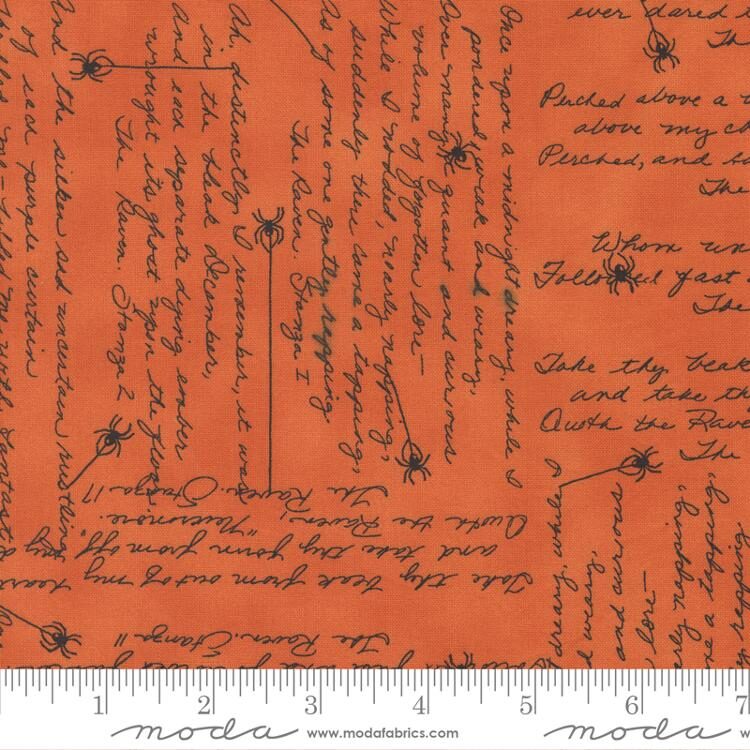 ever dared
The
Perched above a
above my ch
Perched, and
The
Whom un
Followed fast
The
Take thy beak
and take th
Quoth the Rave
The
Once upon a midnight dreary, while I
pondered, weak and weary,
Over many a quaint and curious
volume of forgotten lore—
While I nodded, nearly napping,
suddenly there came a tapping,
As of some one gently rapping
The Raven. Stanza I
Ah, distinctly I remember, it was
in the bleak December,
And each separate dying ember
wrought its ghost upon the floor.
The Raven. Stanza 2
And the silken sad uncertain rustling
of each purple curtain
me—filled me with fantast
Take thy beak from out of my heart
and take thy form from off my d
Quoth the Raven, "Nevermore."
The Raven. Stanza 17
The Raven. Stanza 11
dreary, while I
weary,
and curious
lore—
napping,
me a tapping,
rapping
1 2 3 4 5 6 7
moda www.modafabrics.com moda w